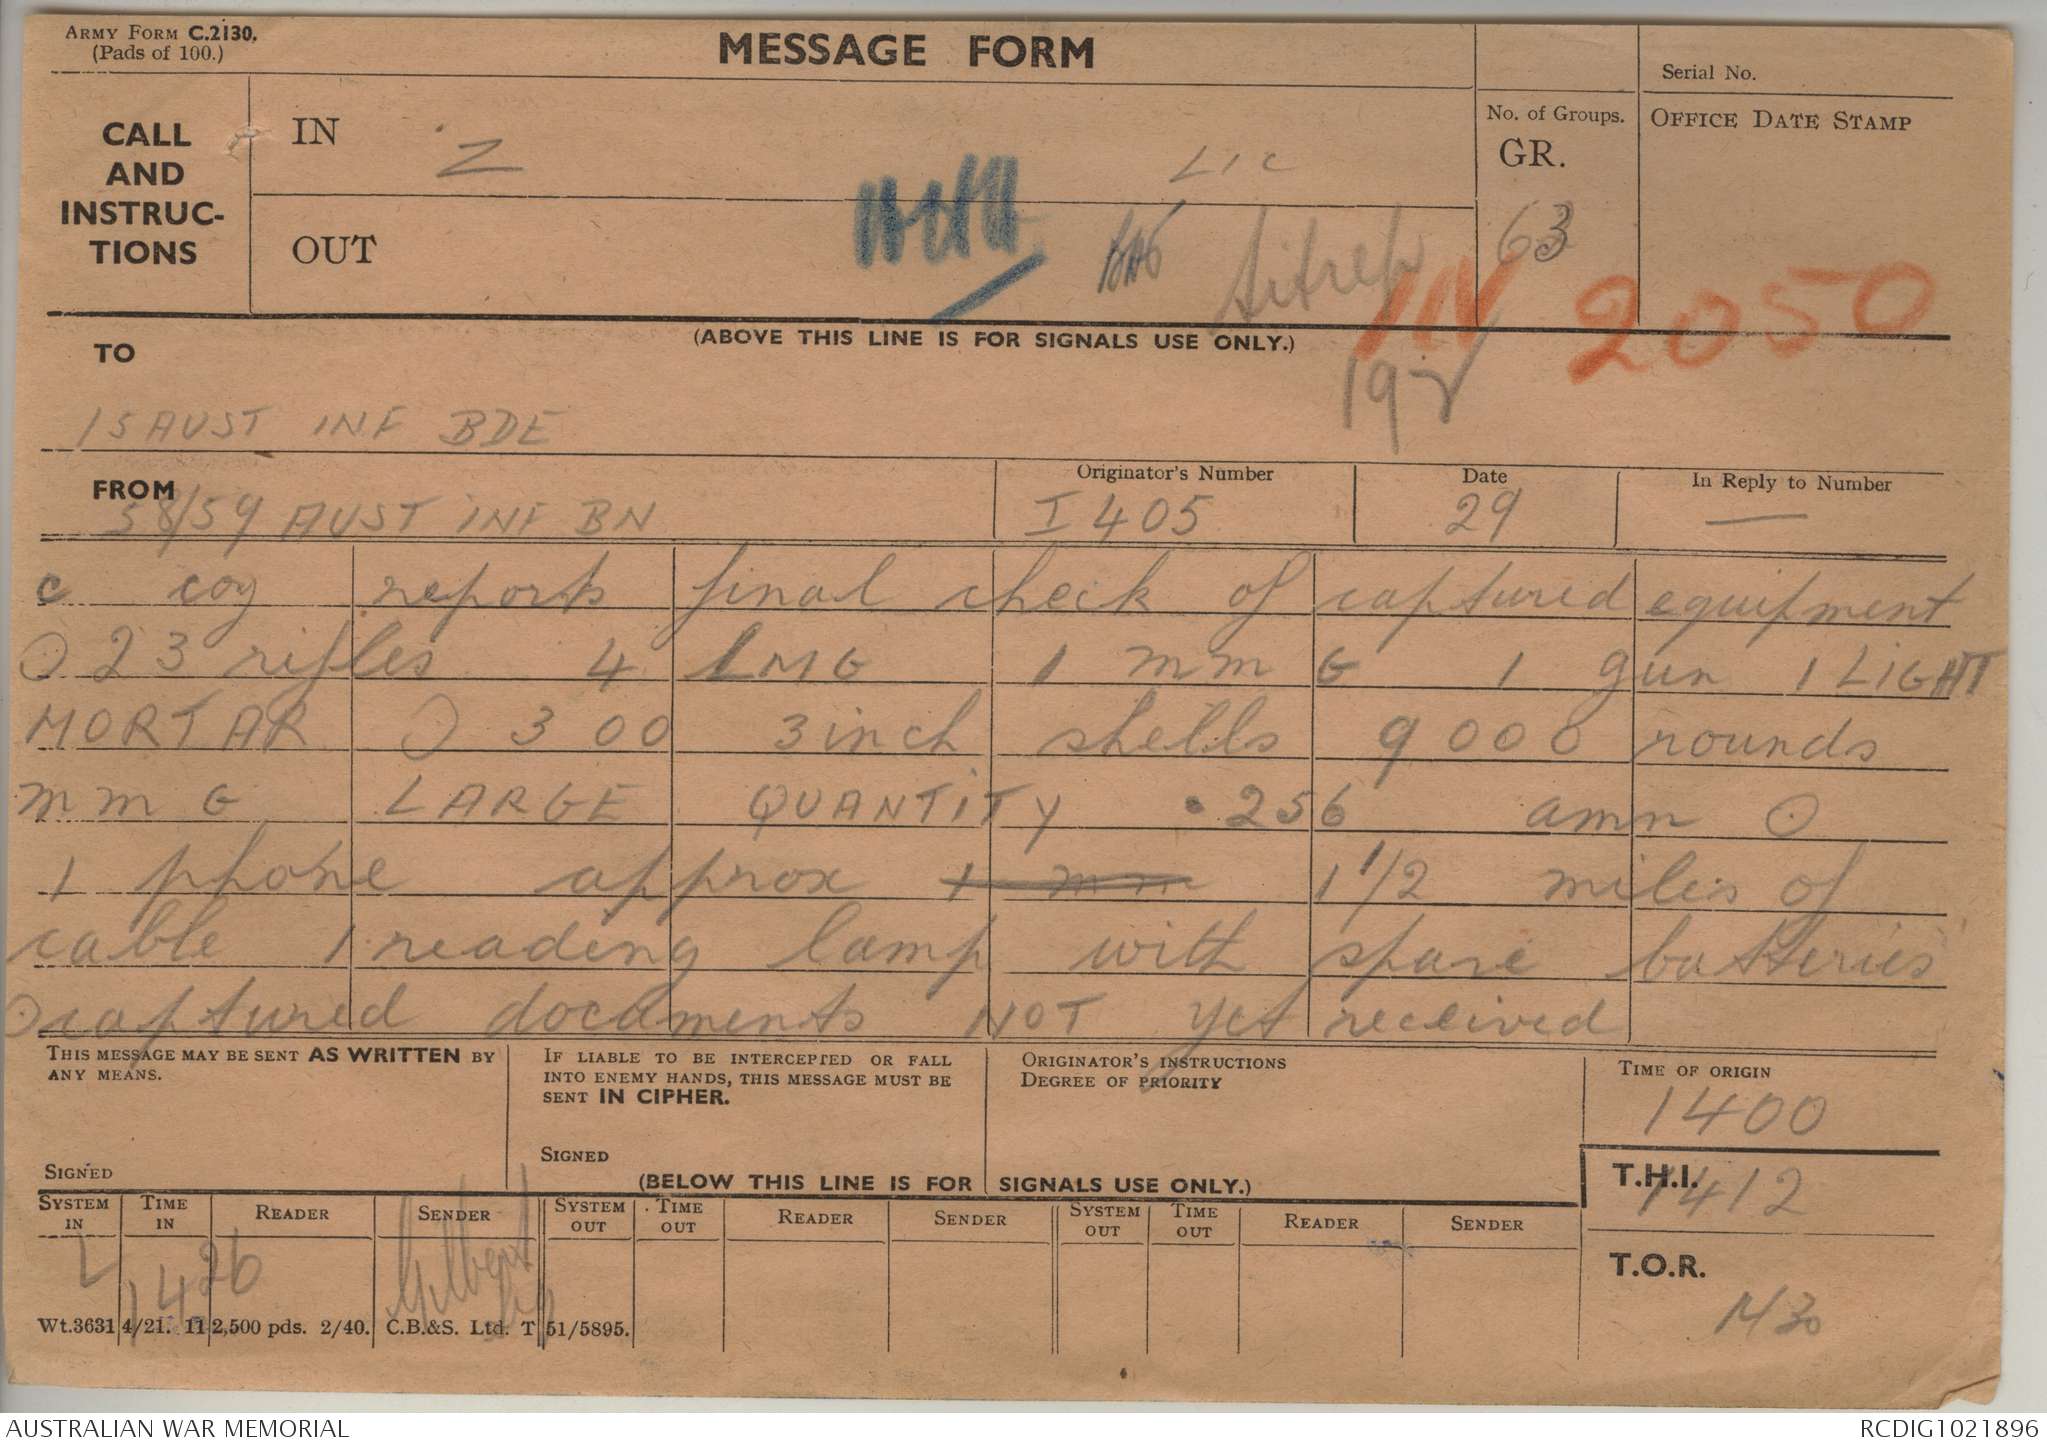 ARMY FORM C.2130.
(Pads of 100.)
MESSAGE FORM
Serial No.
CALL
AND
INSTRUC-
TIONS
IN
Z
LIC
No. of Groups.
GR.
63
OFFICE DATE STAMP
OUT
Sitrep
IN 2050
(ABOVE THIS LINE IS FOR SIGNALS USE ONLY.)
TO
15 AUST INF BDE
FROM
58/59 AUST INF BN
Originator's Number
I 405
Date
29
In Reply to Number
—
c coy reports final check of captured equipment
O 23 rifles 4 LMG 1 mm G 1 gun 1 LIGHT
MORTAR O 300 3 inch shells 9000 rounds
mm G LARGE QUANTITY .256 amn O
1 phone approx 1 mm 1 1/2 miles of
cable 1 reading lamp with spare batteries
O captured documents NOT yet received
THIS MESSAGE MAY BE SENT AS WRITTEN BY
ANY MEANS.
SIGNED
IF LIABLE TO BE INTERCEPTED OR FALL
INTO ENEMY HANDS, THIS MESSAGE MUST BE
SENT IN CIPHER.
SIGNED
ORIGINATOR'S INSTRUCTIONS
DEGREE OF PRIORITY
TIME OF ORIGIN
1400
(BELOW THIS LINE IS FOR SIGNALS USE ONLY.)
T.H.I.
1412
SYSTEM IN
TIME IN
READER
SENDER
SYSTEM OUT
TIME OUT
READER
SENDER
SYSTEM OUT
TIME OUT
READER
SENDER
L
1426
Gilbert
T.O.R.
1430
Wt.3631 4/21. 11 2,500 pds. 2/40. C.B.&S. Ltd. T 51/5895.
AUSTRALIAN WAR MEMORIAL
RCDIG1021896